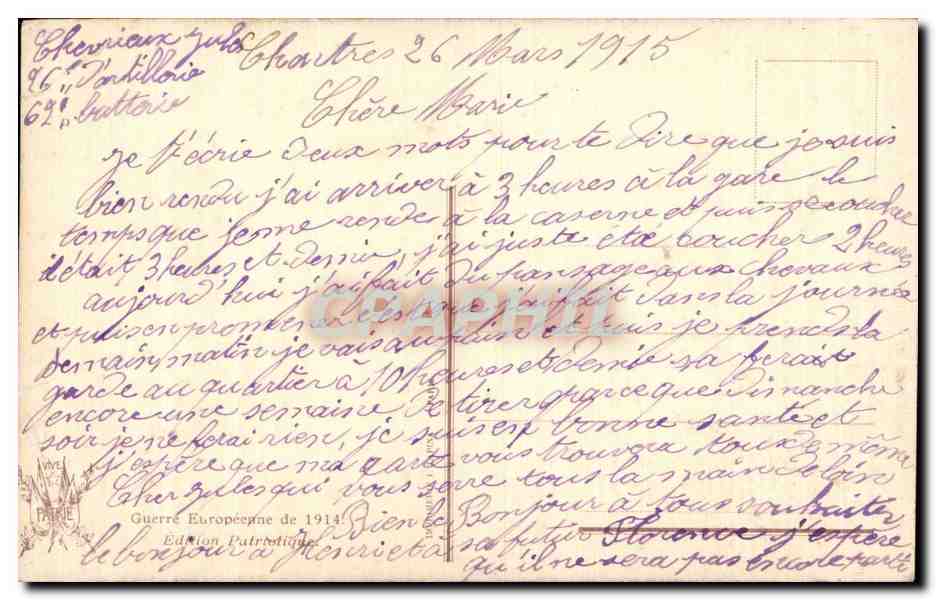 Chevrieux Jules Chartres 26 Mars 1915
26e d'artillerie
62e battorie
Chère Marie
Je t'écrie deux mots pour te dire que je suis
bien rendu j'ai arriver à 3 heures à la gare le
temps que je me rende à la caserne et puis se coucher
il était 3 heures et demie, j'ai juste été coucher 2 heures
aujourd'hui j'ai fait du pansage aux chevaux
et puis en promener c'est que j'ai fait dans la journée
demain matin je vais au et puis je prends la
garde au quartier à 10 heures et demie sa ferait
encore une semaine de tirer parce que dimanche
soir je ne ferai rien, je suis en bonne santé et
j'espère que ma carte vous trouvera tous de même
Cher Jules qui vous serre tous la main de loin
Bien le Bonjour à tous souhaiter
le bonjour à Henrieta sa futur Florence j'espère
qu'il ne sera pas encore parti
VIVE LA PATRIE
Guerre Européenne de 1914.
Édition Patriotique.
CPAPHIL